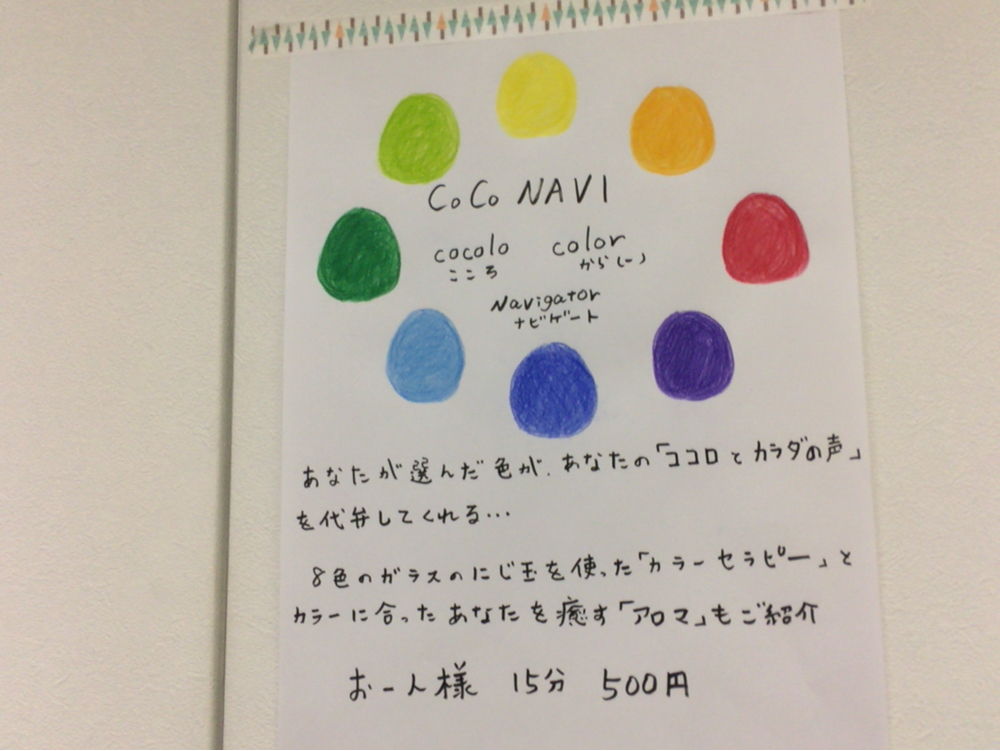 CoCo NAVI
cocolo color
こころ からー
Navigator
ナビゲート
あなたが選んだ色が、あなたの「ココロとカラダの声」
を代弁してくれる…
8色のガラスのにじ玉を使った「カラーセラピー」と
カラーに合ったあなたを癒す「アロマ」もご紹介
お一人様 15分 500円